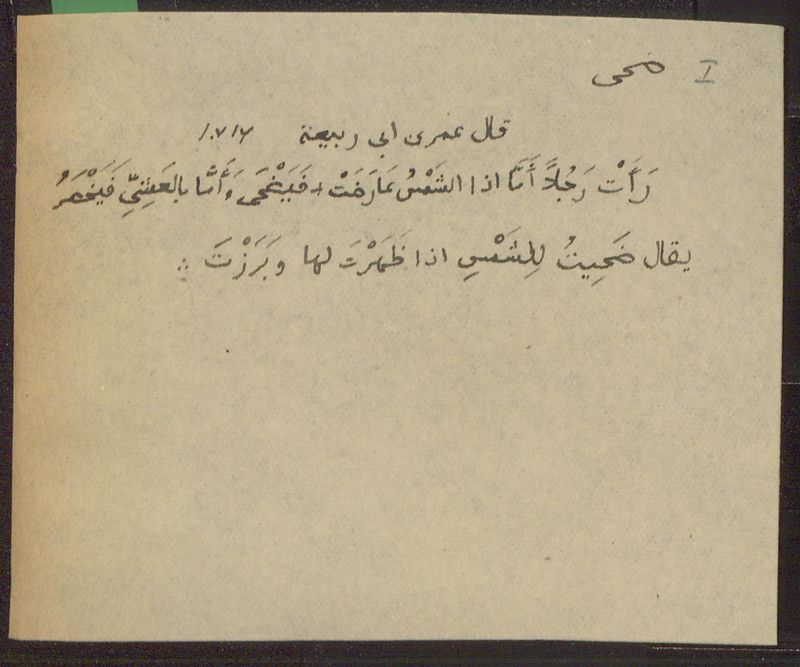 ضحى I
قال عمر بن ابي ربيعة
رَأَتْ رَجُلاً أَمَّا اذا الشَمْسُ عَارَضَتْ + فَيَضْحَى وَأَمَّا بالعَشِيِّ فَيَخْصَرُ
يقال ضَحِيتُ لِلشَمْسِ اذا ظَهَرْتَ لها وبَرَزْتَ ∴